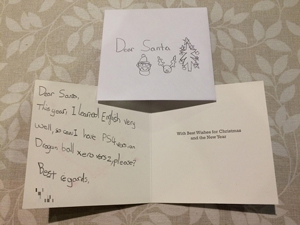 Dear Santa
Dear Santa,
This year I learned English very
well, so can I have PS4 version
Dragon ball xenoverse 2, please?
Best regards,
With Best Wishes for Christmas
and the New Year